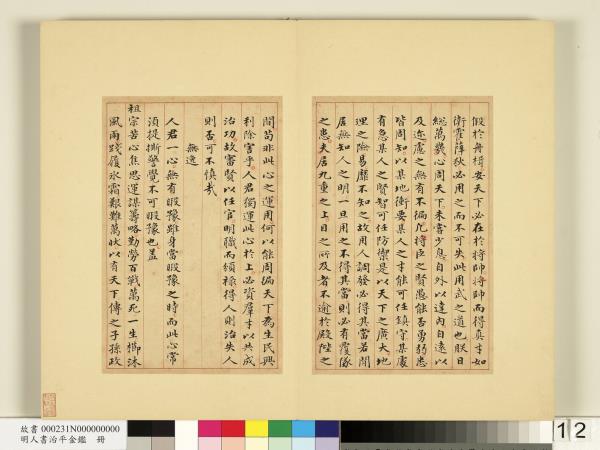 假於舟楫安天下必在於將帥將帥而得真才如
衛霍薛狄必用之而不可失此用武之道也朕日
総萬幾心周天下未嘗少息自外以達內自遠以
及迩慮之無有不徧凢將臣之賢愚能否勇弱悉
皆周知以某地衝要某人之才能可任鎮守某處
有急某人之賢智可任防禦是以天下之廣大地
理之險易靡不知之故用人調發必得其當若閒
居無知人之明一旦用之不得其當則必有覆隊
之患夫居九重之上目之所及者不逾於殿陛之
間苟非此心之運用何以能周徧天下為生民興
利除害乎人君獨運此心於上必資羣才以共成
治功故審賢以任官明職而頒祿得人則治失人
則否可不慎哉
無逸
人君一心無有暇豫雖身當暇豫之時而此心常
須提撕警覺不可暇豫也盖
祖宗苦心焦思運謀籌略勤勞百戰萬死一生櫛沐
風雨踐履氷霜艱難萬狀以有天下傳之子孫政
故書 000231N000000000
明人書治平金鑑 冊
12